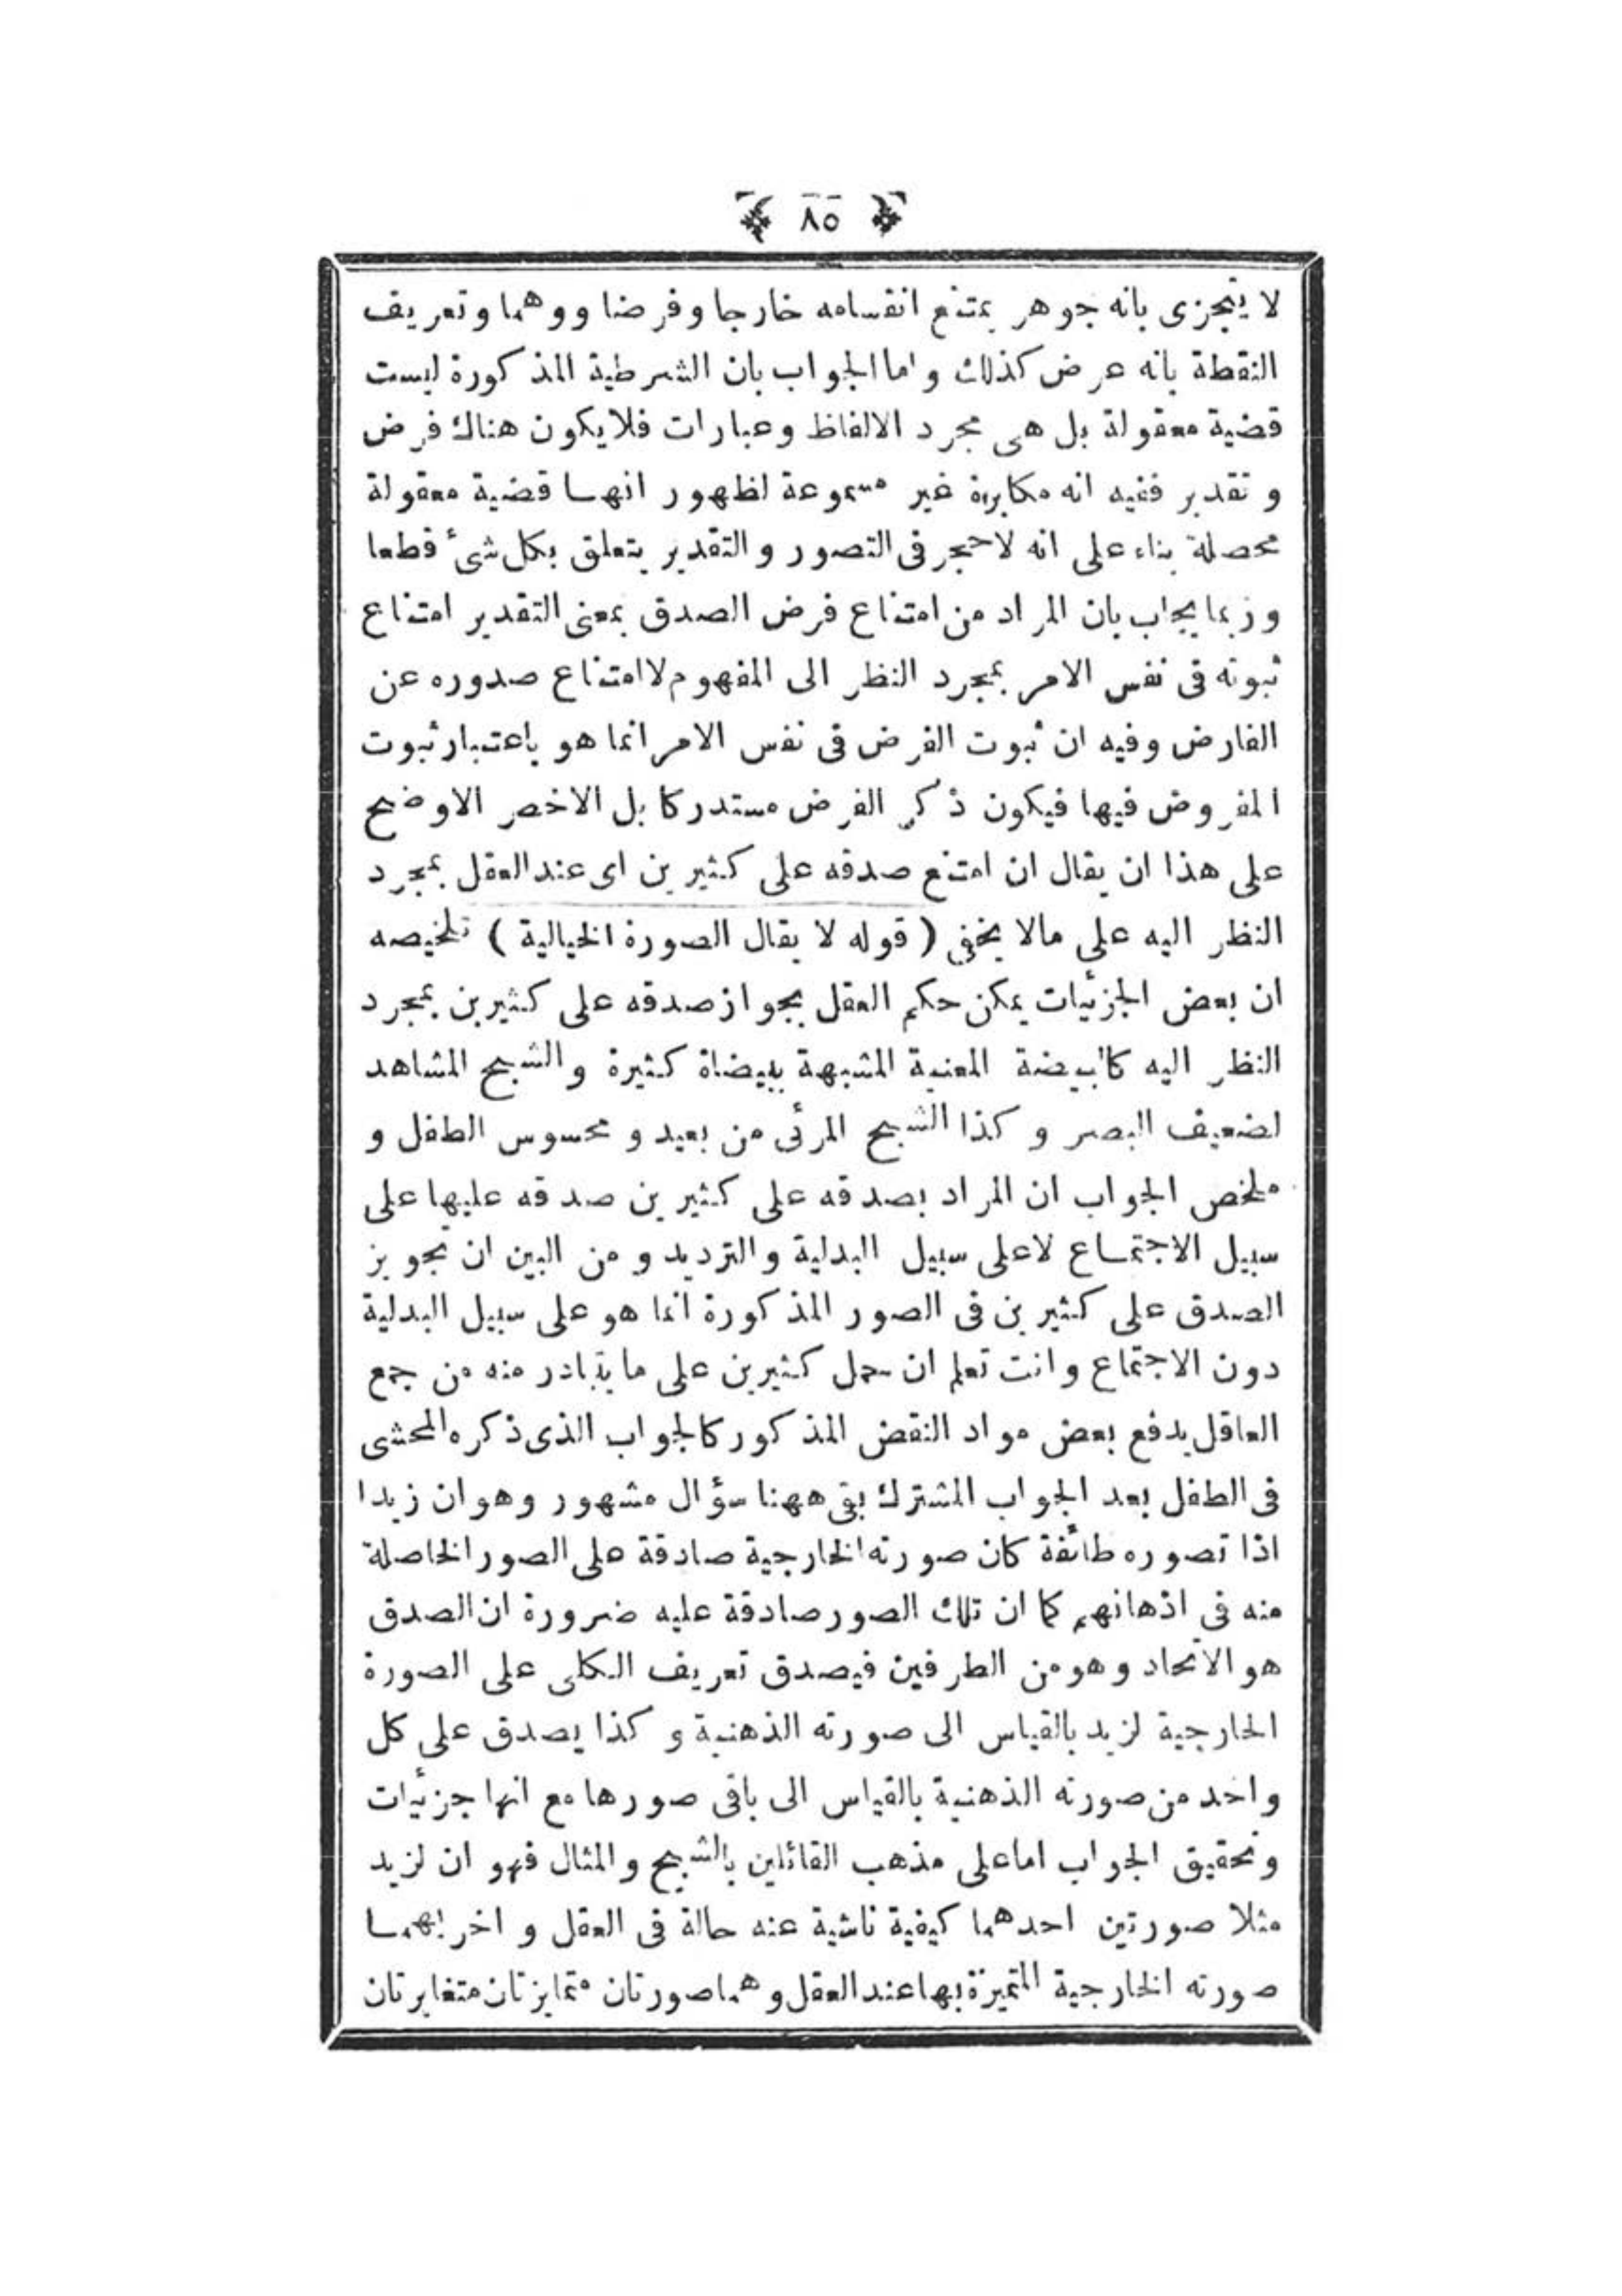 ٨٥
لا يتجزى بانه جوهر يمتنع انقسامه خارجا وفرضا ووهما وتعريف
النقطة بانه عرض كذلك واما الجواب بان الشرطية المذكورة ليست
قضية معقولة بل هى مجرد الالفاظ وعبارات فلايكون هناك فرض
و تقدير ففيه انه مكابرة غير مسموعة لظهور انهسا قضية معقولة
محصلة بناء على انه لاحجر فى التصور والتقدير يتعلق بكل شئ قطعا
وربما يجاب بان المراد من امتناع فرض الصدق بمعنى التقدير امتناع
ثبوته فى نفس الامر بمجرد النظر الى المفهوم لاامتناع صدوره عن
الفارض وفيه ان ثبوت الفرض فى نفس الامر انما هو باعتبار ثبوت
المفروض فيها فيكون ذكر الفرض مستدركا بل الاخصر الاوضح
على هذا ان يقال ان امتنع صدقه على كثيرين اى عند العقل بمجرد
النظر اليه على مالا يخفى ( قوله لا يقال الصورة الخيالية ) تلخيصه
ان بعض الجزئيات يمكن حكم العقل بجواز صدقه على كثيرين بمجرد
النظر اليه كالبيضة المعنية المشبهة ببيضاة كثيرة والشبح المشاهد
لضعيف البصر و كذا الشبح المرئى من بعيد و محسوس الطفل و
ملخص الجواب ان المراد بصدقه على كثيرين صدقه عليها على
سبيل الاجتمساع لاعلى سبيل البدلية والترديد و من البين ان تجويز
الصدق على كثيرين فى الصور المذكورة انما هو على سبيل البدلية
دون الاجتماع وانت تعلم ان حمل كثيرين على ما يتبادر منه من جمع
العاقل يدفع بعض مواد النقض المذكور كالجواب الذى ذكره المحشى
فى الطفل بعد الجواب المشترك بقى ههنا سؤال مشهور وهو ان زيدا
اذا تصوره طائفة كان صورته الخارجية صادقة على الصور الحاصلة
منه فى اذهانهم كما ان تلك الصور صادقة عليه ضرورة ان الصدق
هو الاتحاد وهو من الطرفين فيصدق تعريف الكلى على الصورة
الخارجية لزيد بالقياس الى صورته الذهنية و كذا يصدق على كل
واحد من صورته الذهنية بالقياس الى باقى صورها مع انها جزئيات
وتحقيق الجواب اما على مذهب القائلين بالشبح والمثال فهو ان لزيد
مثلا صورتين احدهما كيفية ناشية عنه حالة فى العقل و اخريهمسا
صورته الخارجية المتميزة بها عند العقل وهما صورتان متمايزتان متغايرتان